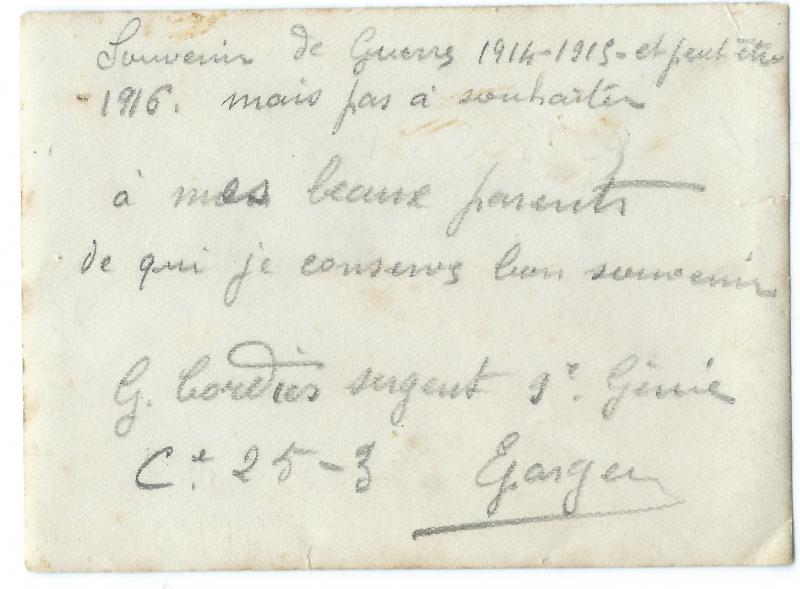 Souvenir de Guerre 1914-1915 - et peut être
- 1916. mais pas à souhaiter
à mes beaux parents
de qui je conserve bon souvenir
G. Cordier sergent 9e. Génie
Cie 25-3